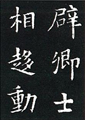 辟卿士
相趍動